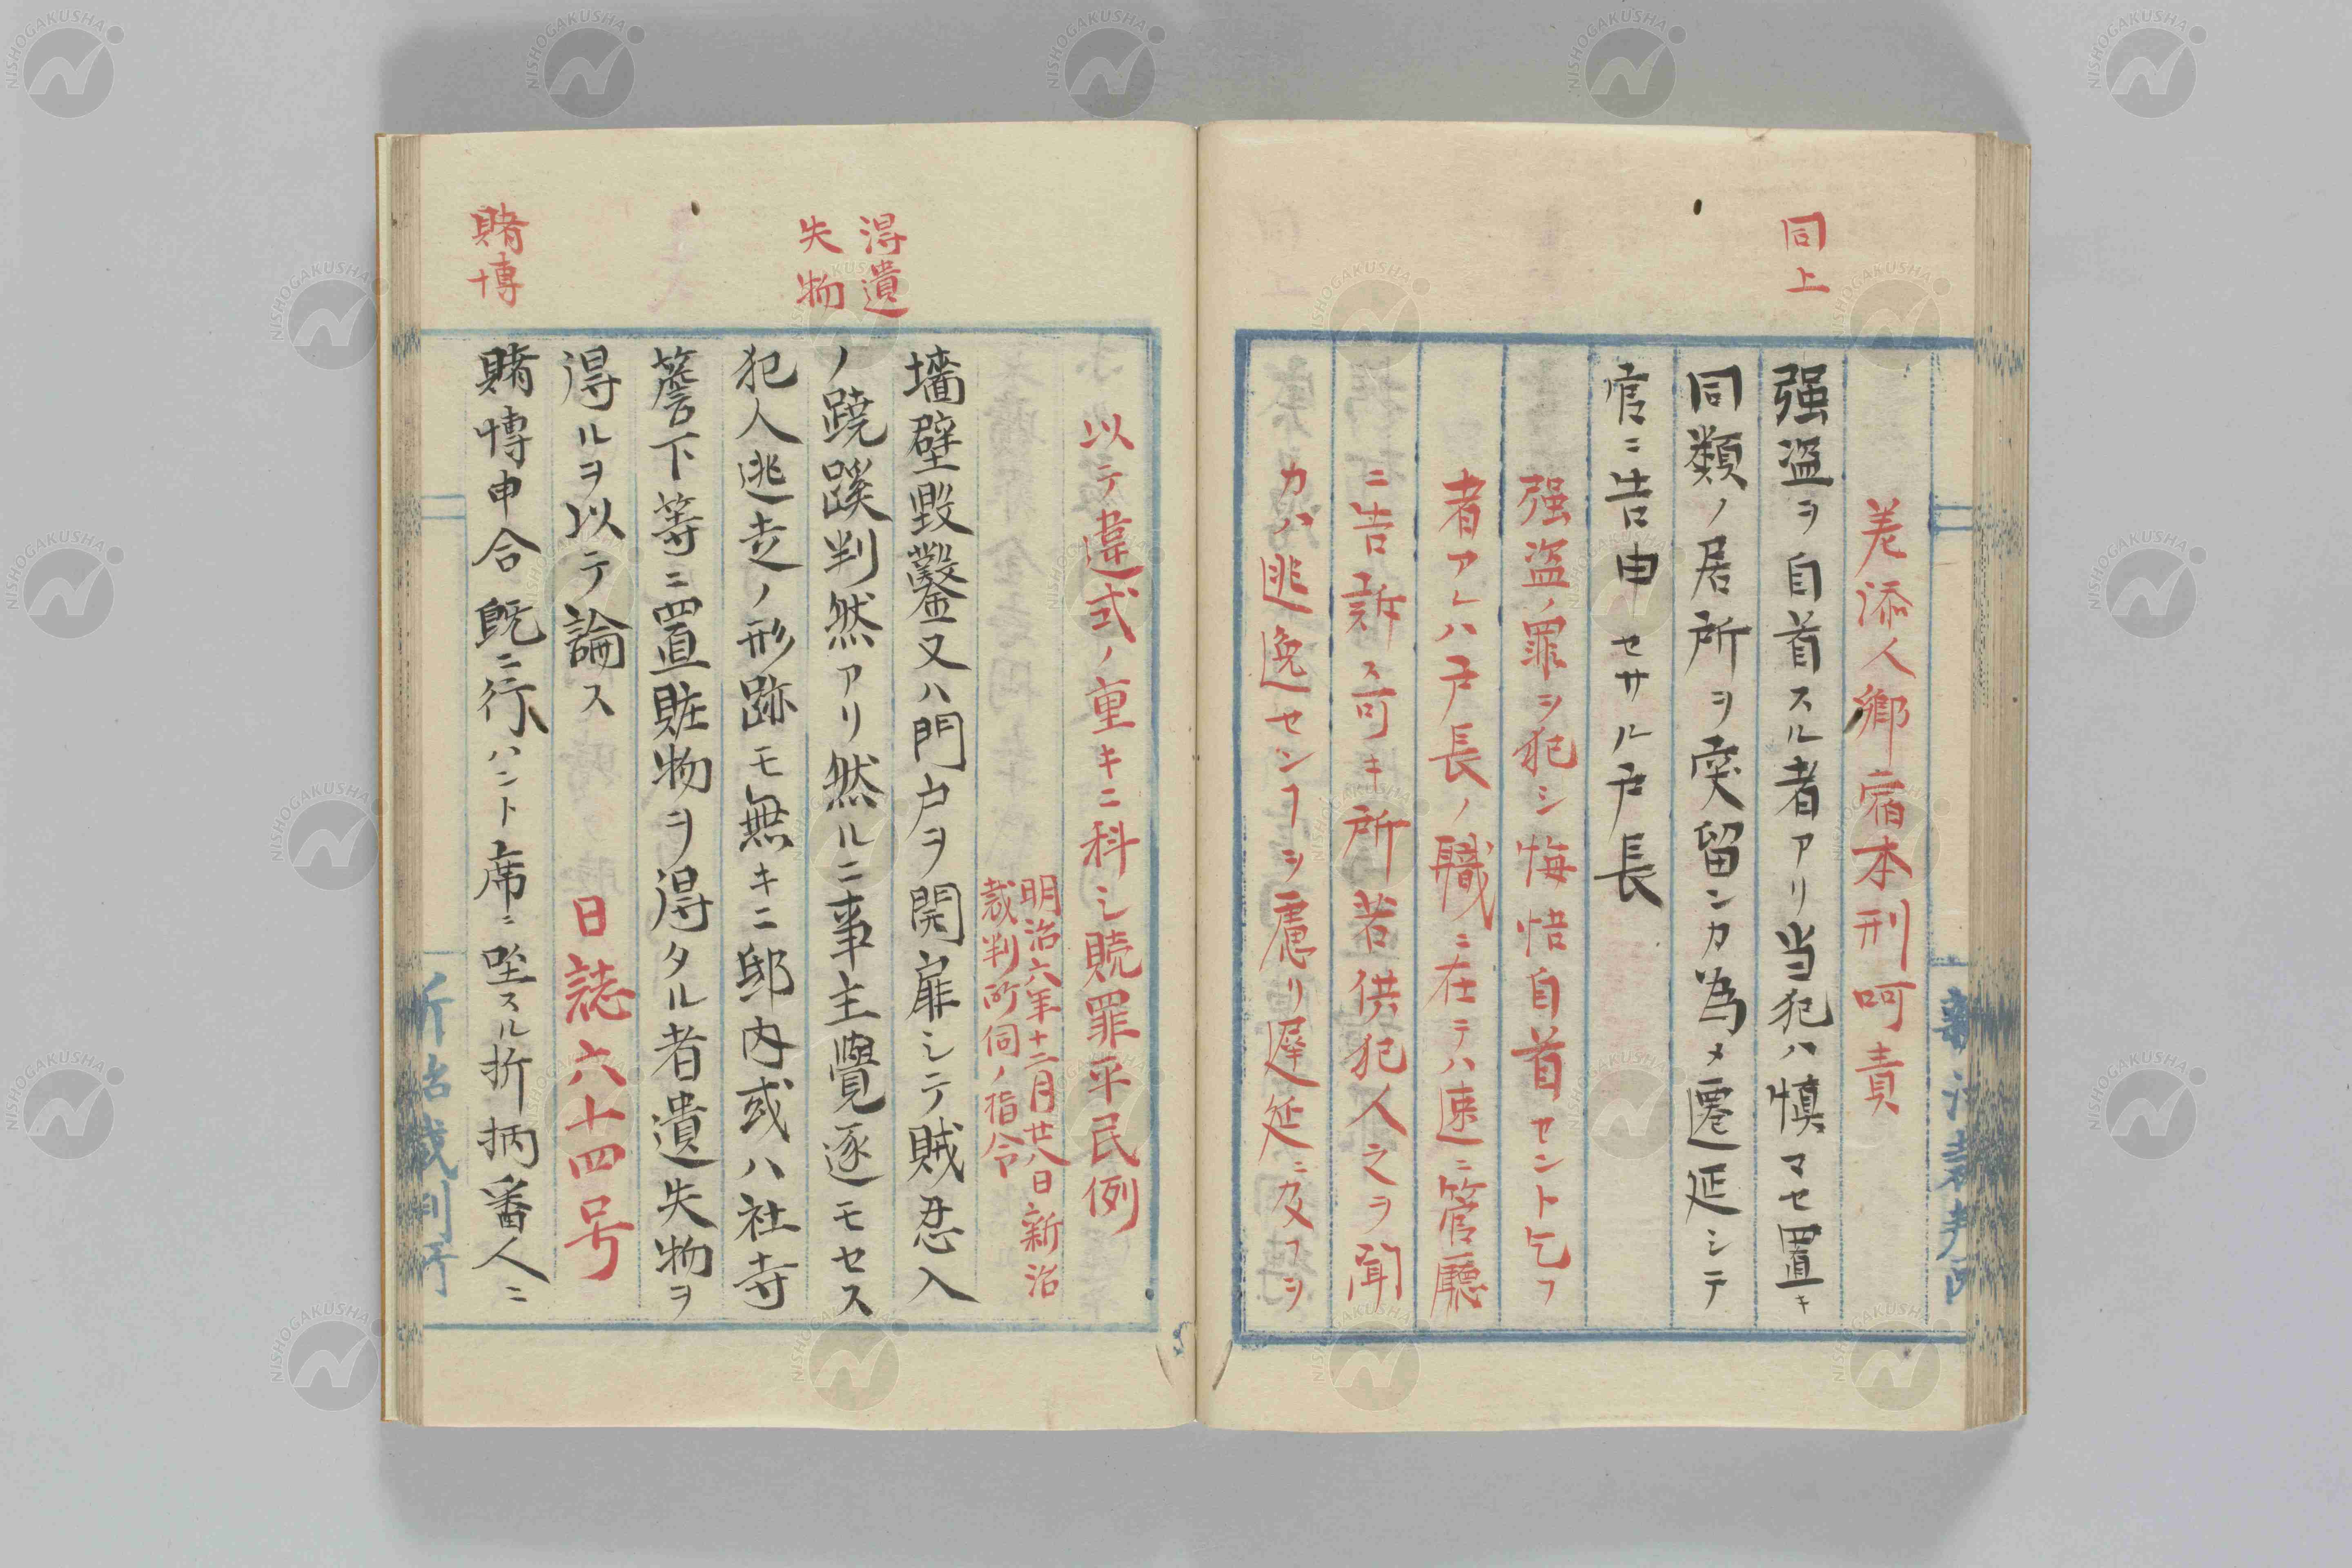 同上
差添人郷宿本刑呵責
强盗ヲ自首スル者アリ当犯ハ慎マセ置キ
同類ノ居所ヲ突留ンカ為メ遷延シテ
官ニ告申セサル戸長
强盗ノ罪ヲ犯シ悔悟自首セント乞フ
者アレハ戸長ノ職ニ在テハ速ニ管廳
ニ告訴ス可キ所若供犯人之ヲ聞
カハ逃逸セン𬼀ヲ慮リ遅延ニ及フヲ
新治裁判所
以テ違式ノ重キニ科シ贖罪平民例
明治六年十二月廿八日新治
裁判所伺ノ指令
得遺
失物
墻壁毀鑿又ハ門戸ヲ開扉シテ賊忍入
ノ蹺蹊判然アリ然ルニ事主覺逐モセス
犯人逃走ノ形跡モ無キニ邸内或ハ社寺
簷下等ニ置賍物ヲ得タル者遺失物ヲ
得ルヲ以テ論ス 日誌六十四号
賭博
賭博申合既ニ行ハント席ニ坐スル折柄番人ニ
新治裁判所
NISHOGAKUSHA